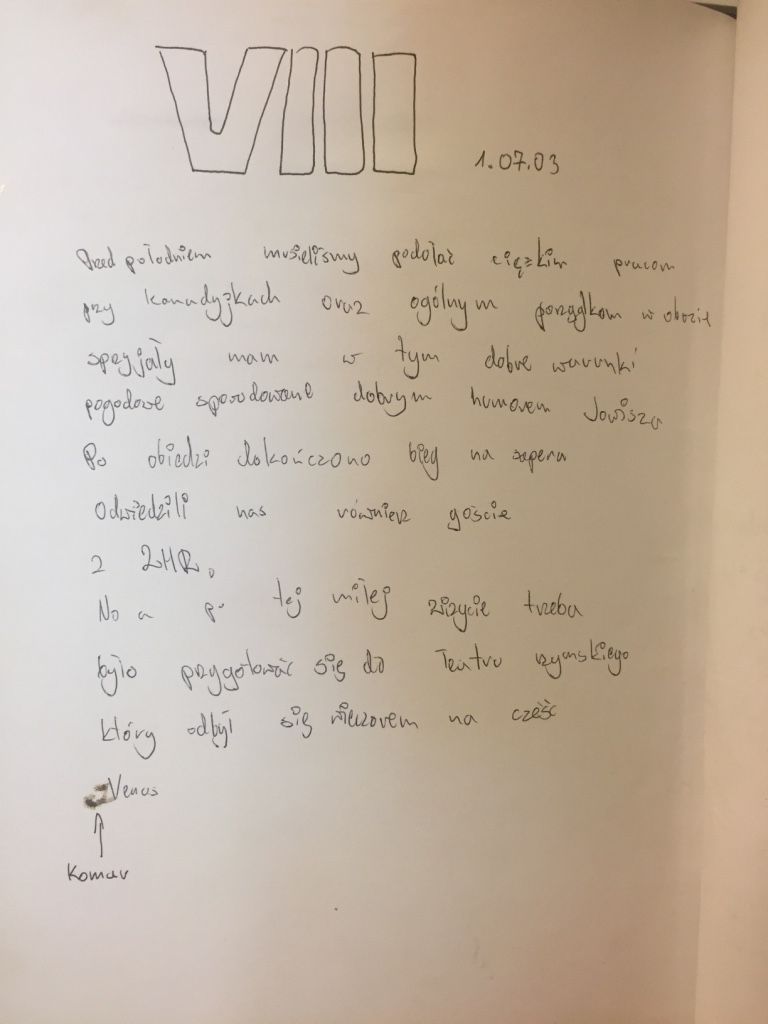 VIII
1.07.03
Przed południem musieliśmy podołać ciężkim pracom
przy kanadyjkach oraz ogólnym porządkom w obozie
mam w tym dobre warunki
pogodowe spowodowane dobrym humorem Jowisza
Po obiedzi dokończono bieg na sapera
Odwiedzili nas również goście
z ZHR.
No a po tej miłej wizycie trzeba
było przygotować się do Teatru rzymskiego
który odbył się wieczorem na cześć
Venus
Komar